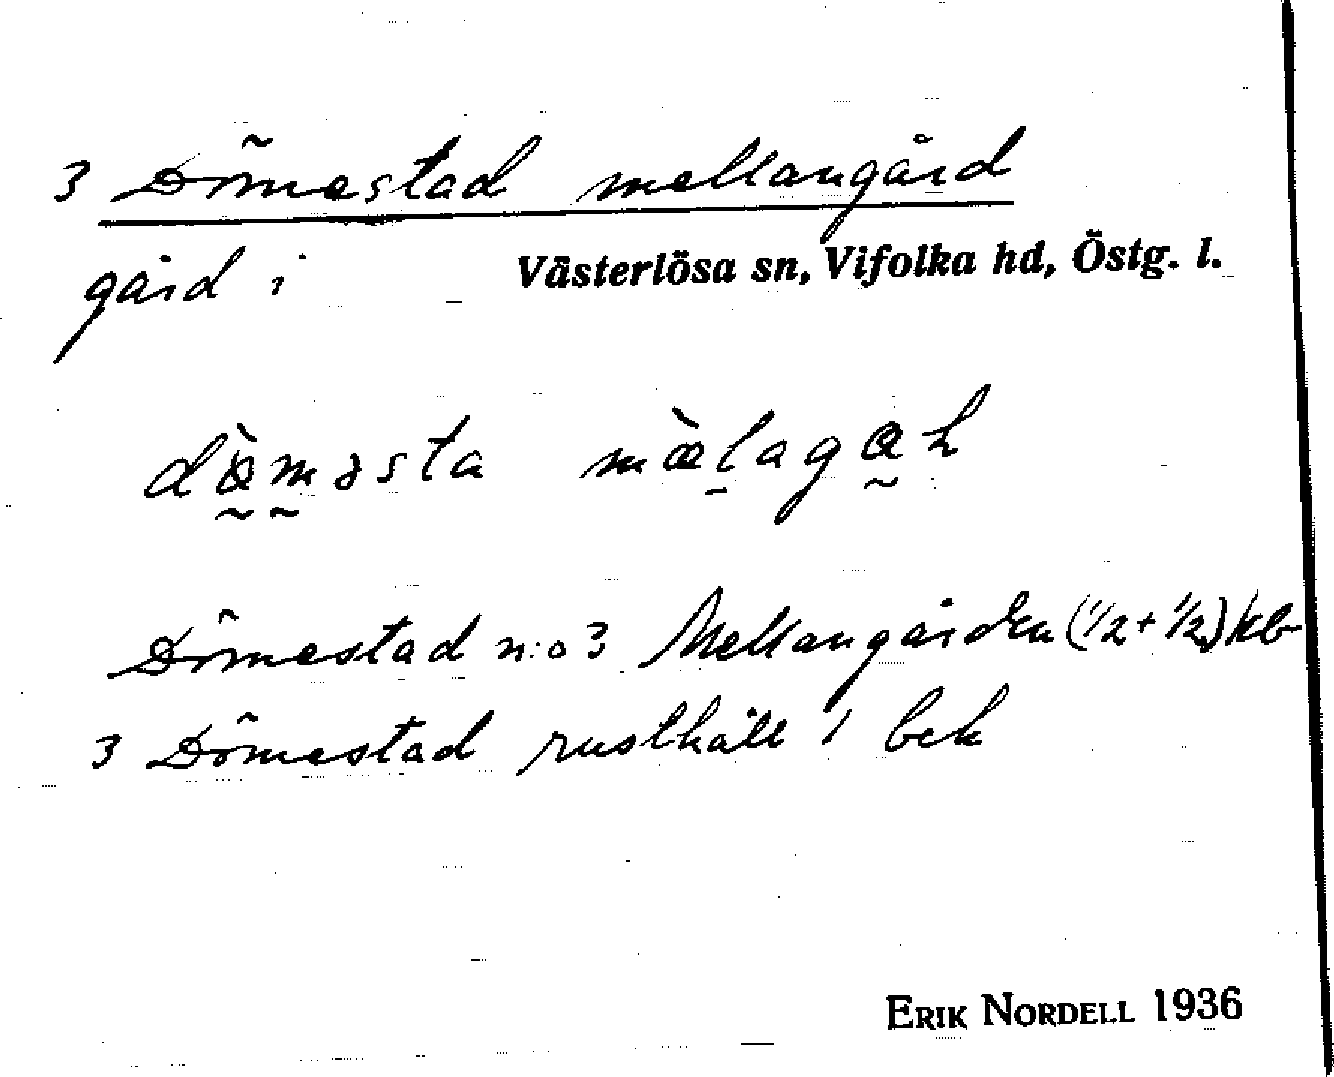 3 Dömestad mellangård
gård i Västerlösa sn, Vifolka hd, Östg. l.
Dömestad n:o 3 Mellangården (1/2 + 1/2) kb
3 Dömestad rusthåll 1 bek
ERIK NORDELL 1936